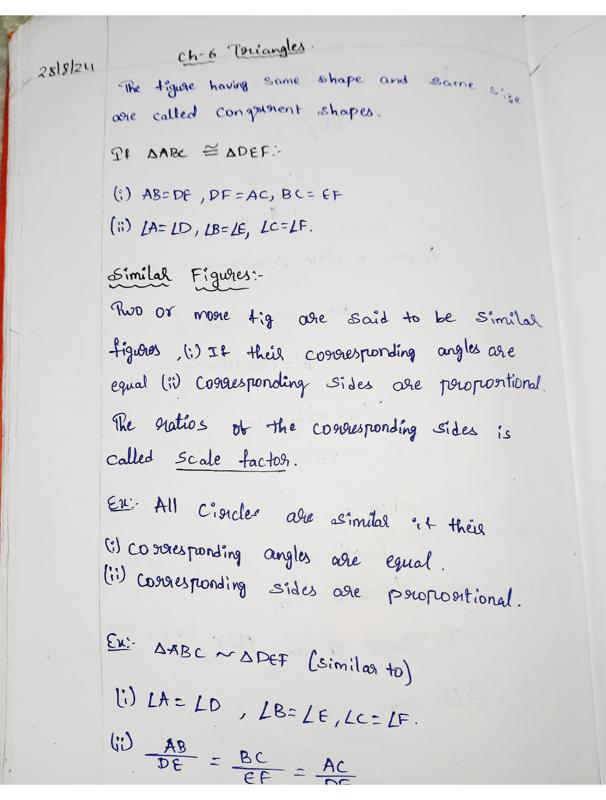 Ch-6 Triangles.
28/8/24
The figure having same shape and same size
are called congruent shapes.
If ΔABC ≅ ΔDEF:-
(i) AB=DE, DF=AC, BC=EF
(ii) ∠A=∠D, ∠B=∠E, ∠C=∠F.
Similar Figures:-
Two or more fig are said to be similar
figures, (i) If their corresponding angles are
equal (ii) corresponding sides are proportional.
The ratios of the corresponding sides is
called scale factor.
Ex:- All Circles are similar if their
(i) corresponding angles are equal.
(ii) corresponding sides are proportional.
Ex:- ΔABC ~ ΔDEF (similar to)
(i) ∠A = ∠D, ∠B=∠E, ∠C=∠F.
(ii) AB/DE = BC/EF = AC/DF